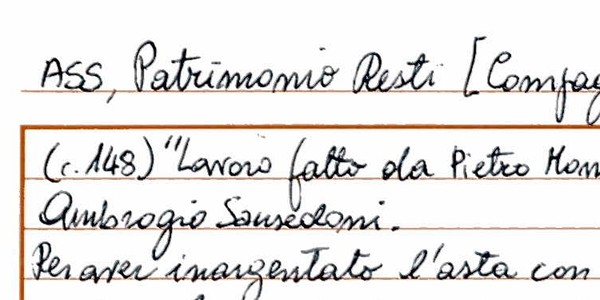 ASS, Patrimonio Resti [Compag
(c. 148) "Lavoro fatto da Pietro Mon
Ambrogio Sansedoni.
Per aver inargentato l'asta con